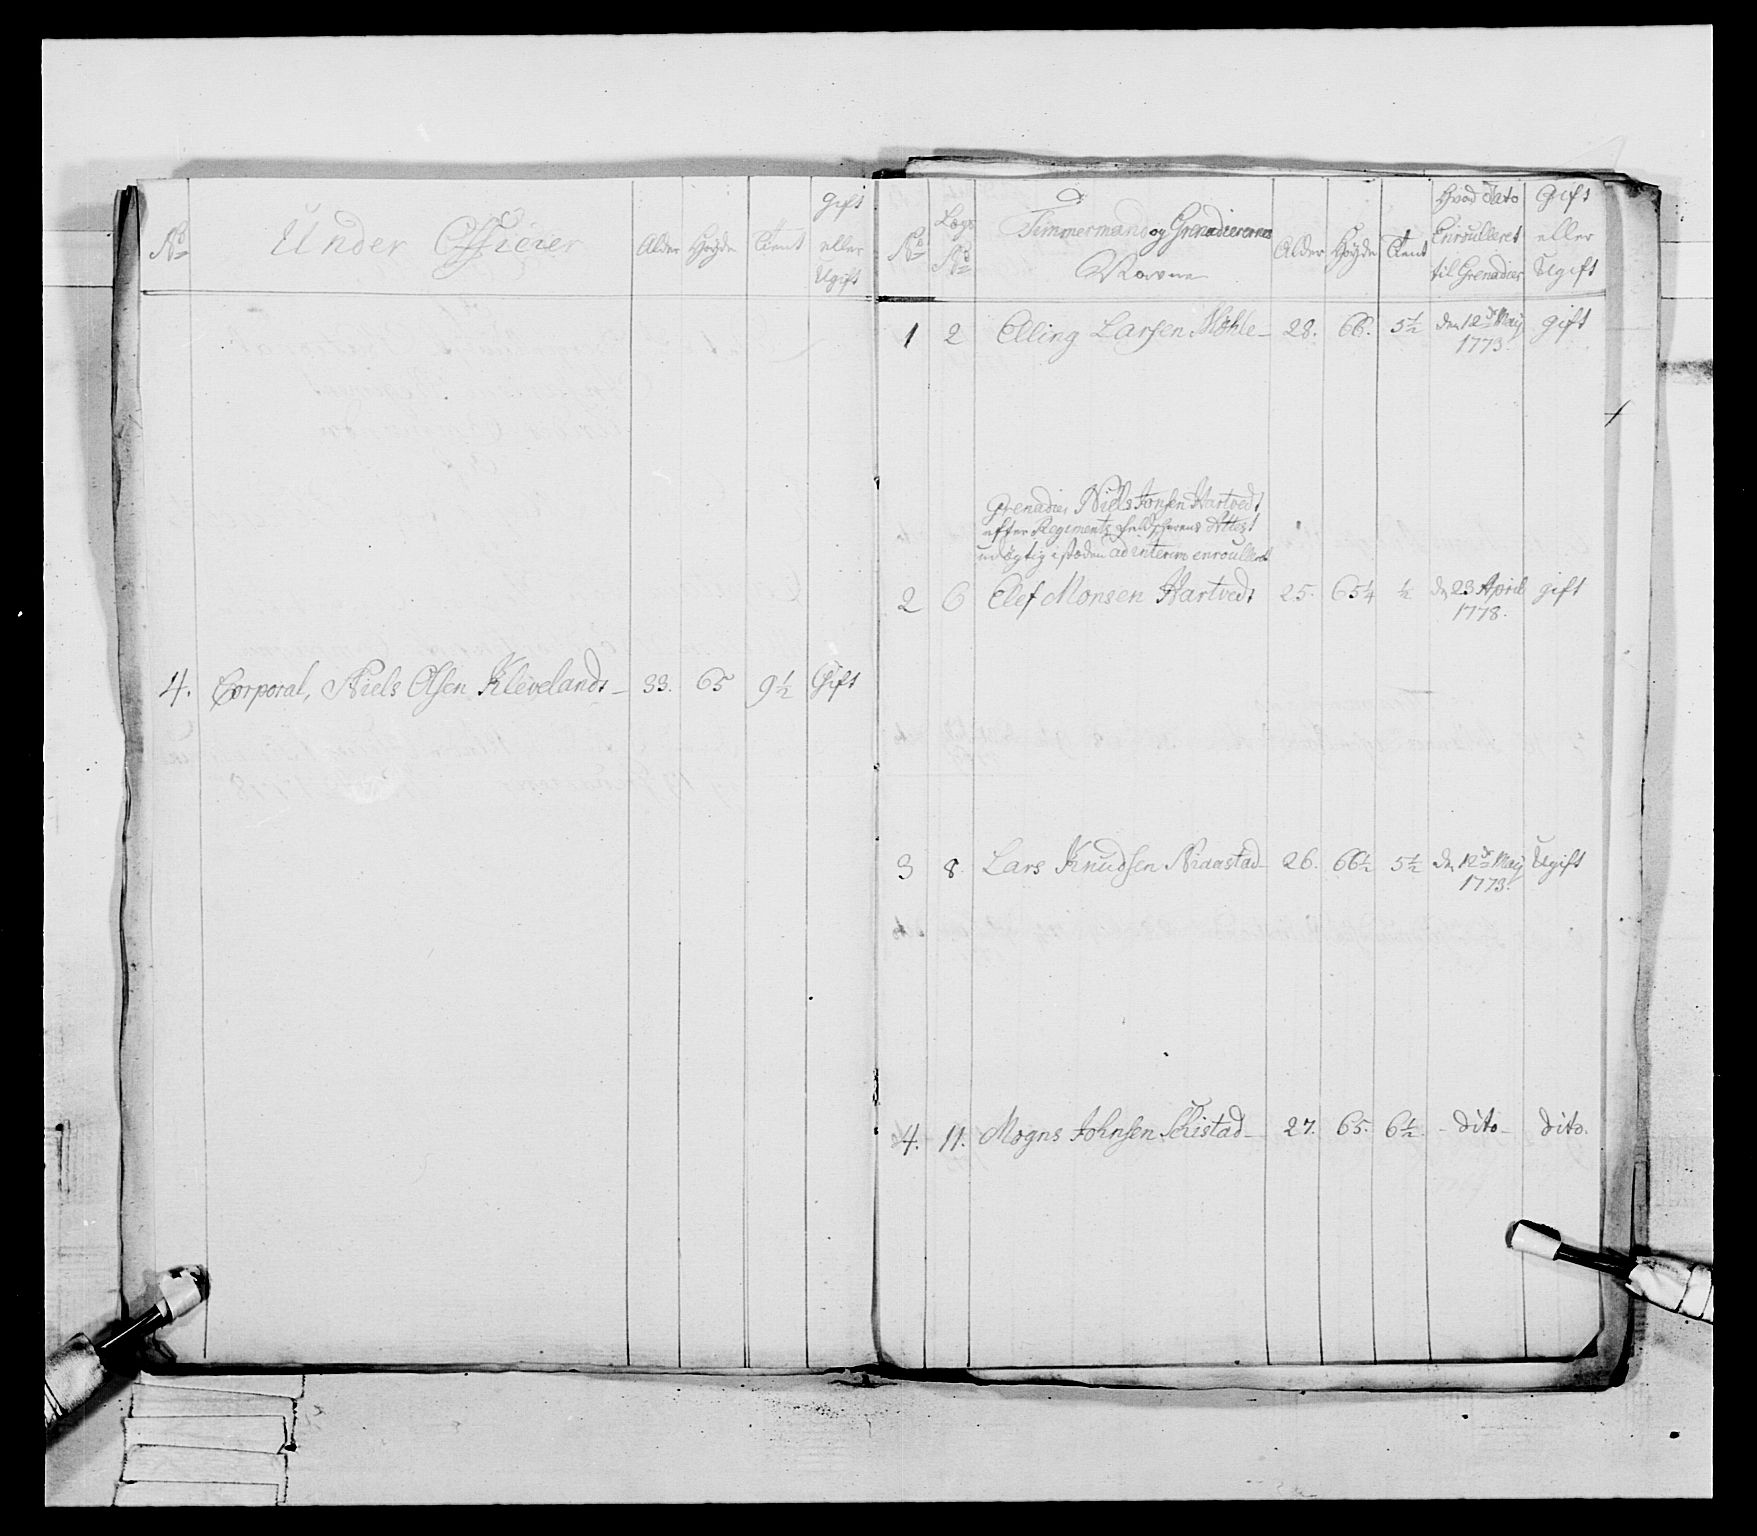 No Under Officier Alder Høyde Tient Gift eller Ugift
4. Corporal, Niels Olsen Klevelandt 33. 65 9½ Gift
No Lægs No Timmermand og Grenadierernes Navne Alder Høyde Tient Hvad dato Enroulleret til Grenadier Gift eller Ugift
1 2 Elling Larsen Møhle 28. 66. 5½ den 12de May 1773. gift
Grenadier Niels Jonsen Hartvedt
efter Regiments feldscherens Attest
udygtig i stæden ad interim enroulleret
2 6 Elef Monsen Hartvedt 25. 65¼ ½ den 23 April 1778. gift
3 8. Lars Knudsen Niaastad 26. 66½ 5½ den 12de May 1773. Ugift
4. 11. Mogns Johnsen 27. 65. 6½ dito dito.